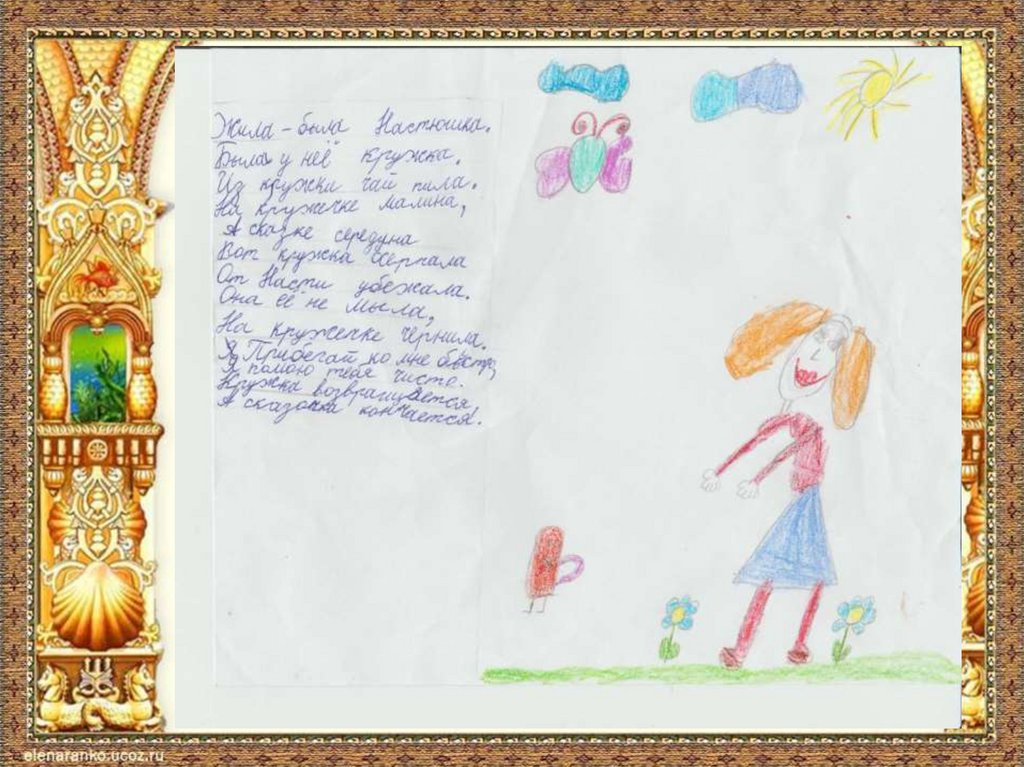 Жила-была Настюшка.
Была у неё кружка.
Из кружки чай пила.
На кружечке малина,
А сказке середина
Вот кружка
От Насти убежала.
Она её не мыла,
На кружечке чернила.
Прибегай ко мне быстро,
Я помою тебя чисто.
Кружка возвращается
А сказочка кончается!
elenaranko.ucoz.ru